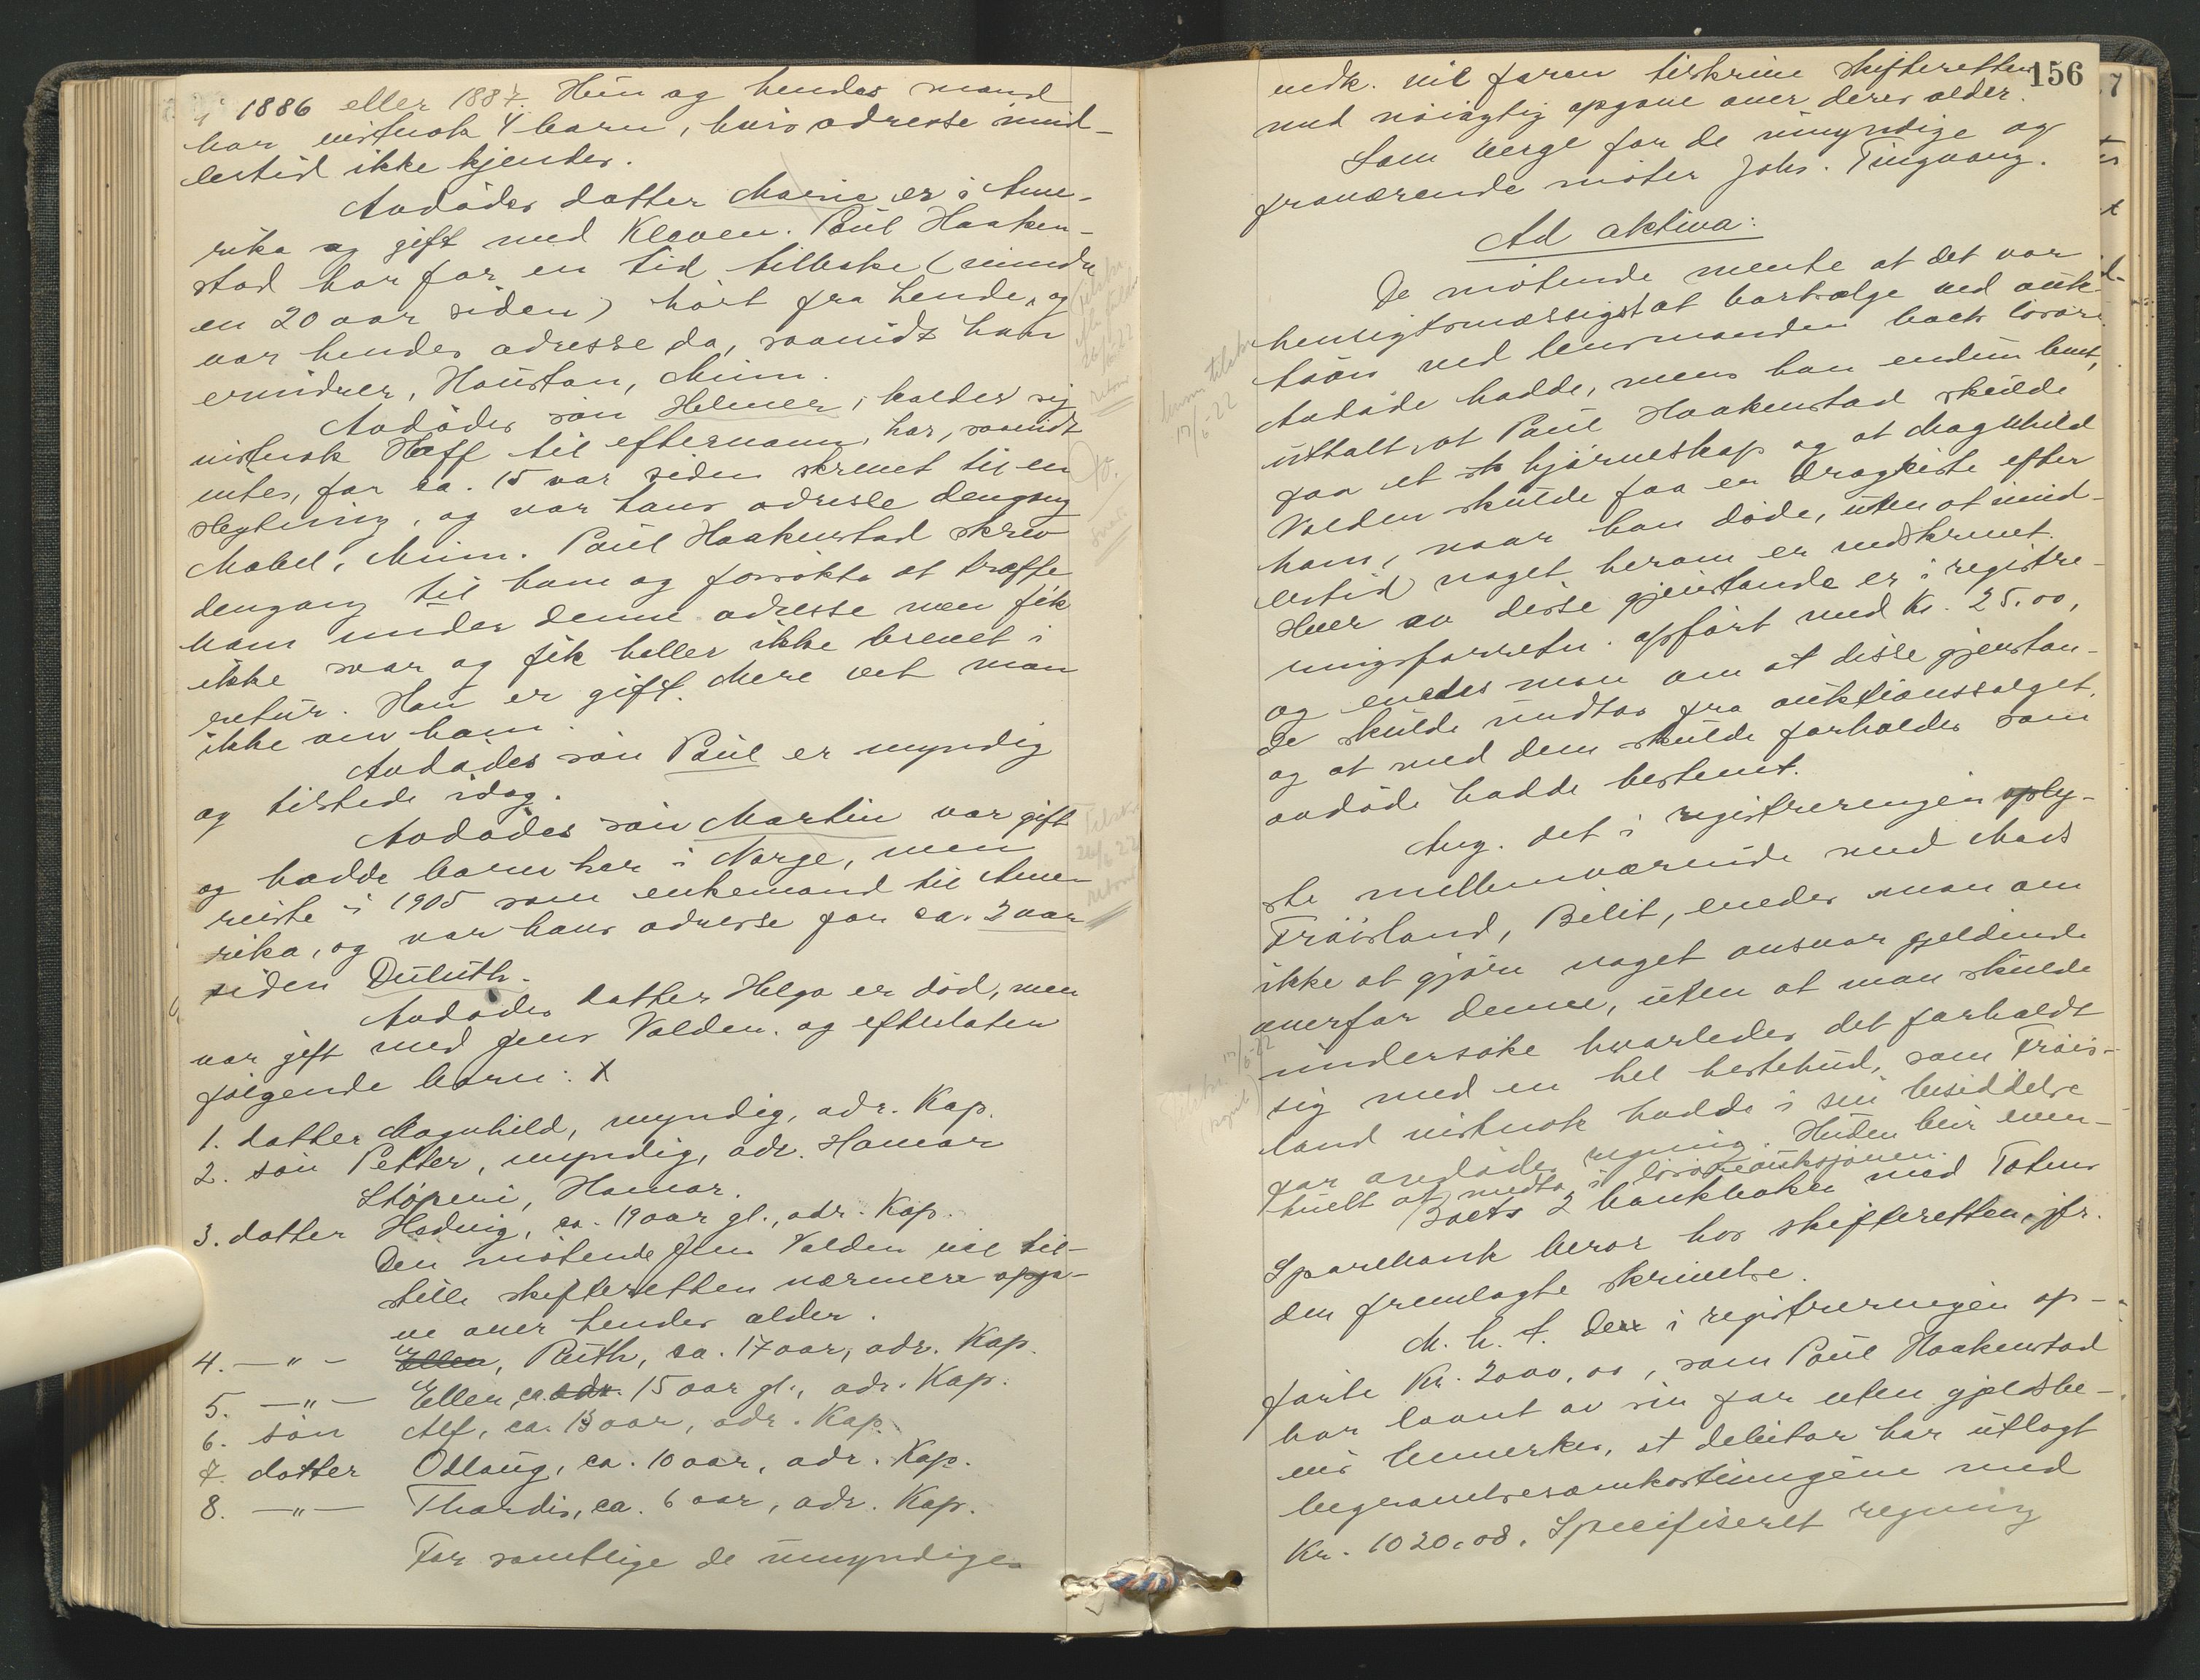 i 1886 eller 1887. Hun og hendes mand
har vistnok 4 barn, hvis adresse imid-
lertid ikke kjendes.
Avdødes datter Marie er i Ame-
rika og gift med Kleven. Paul Haaken-
stad har for en tid tilbake (mindst
en 20 aar siden) hørt fra hende, og
var hendes adresse da, saavidt han
erindrer, Houston, Minn.
Avdødes søn Helmer, kalder sig
vistnok Hoff til efternavn, har, saavidt
vites, for ca. 15 aar siden skrevet til en
slegtning, og var hans adresse dengang
Mabel, Minn. Paul Haakenstad skrev
dengang til ham og forsøkte at træffe
ham under denne adresse men fik
ikke svar og fik heller ikke brevet i
retur. Han er gift. Mere vet man
ikke om ham.
Avdødes søn Paul er myndig
og tilstede idag.
Avdødes søn Martin var gift
og hadde barn her i Norge, men
reiste i 1905 som enkemand til Ame-
rika, og var hans adresse for ca. 2 aar
siden Duluth.
Avdødes datter Helga er død, men
var gift med Jens Volden og efterlaten
følgende barn: x
1. datter Magnhild, myndig, adr. Kap.
2. søn Petter, myndig, adr. Hamar
Støperi, Hamar.
3. datter Hedvig, ca. 19 aar gl., adr. Kap.
Den møtende Jens Volden vil til-
stille skifteretten nærmere opga-
ve over hendes alder.
4. —"— Ellen, Ruth, ca. 17 aar, adr. Kap.
5. —"— Ellen, ca. adr. 15 aar gl., adr. Kap.
6. søn Alf, ca. 13 aar, adr. Kap.
7. datter Odlaug, ca. 10 aar, adr. Kap.
8. —"— Thordis, ca. 6 aar, adr. Kap.
For samtlige de umyndiges
Tilskr.
26/6-22
retur
svar
Tilskr.
26/6 22
retur
156
vedk. vil faren tilskrive skifteretten
med nøiagtig opgave over deres alder.
Som verge for de umyndige og
fraværende møter Johs. Tingvang.
Ad aktiva:
De møtende mente at det var
hensigtsmæssigst at bortsælge ved auk-
tion ved lensmanden boets løsøre.
Avdøde hadde, mens han endnu levet,
uttalt, at Paul Haakenstad skulde
faa et sk hjørneskap og at Magnhild
Volden skulde faa en dragkiste efter
ham, naar han døde, uten at imid-
lertid noget herom er nedskrevet.
Hver av disse gjenstande er i registre-
ringsforretn. opført med Kr. 25.00,
og enedes man om at disse gjenstan-
de skulde undtas fra auktionssalget,
og at med dem skulde forholdes som
avdøde hadde bestemt.
Ang. det i registreringen oply-
ste mellemværende med Mads
Frøisland, Bilit, enedes man om
ikke at gjøre noget ansvar gjeldende
overfor denne, uten at man skulde
undersøke hvorledes det forholdt
sig med en hel hestehud, som Frøis-
land vistnok hadde i sin besiddelse
for avdødes regning. Huden blir even-
tuelt at medta i løsøreauksjonen.
Boets 2 bankbøker med Totens
Sparebank beror hos skifteretten, jfr.
den fremlagte skrivelse.
M. h. t. den i registreringen op-
førte Kr. 2000,00, som Paul Haakenstad
har laant av sin far uten gjeldsbe-
vis bemerkes, at debitor har utlagt
begravelsesomkostningene med
Kr. 1020.08. Specifiseret regning
17/6-22
17/6-22